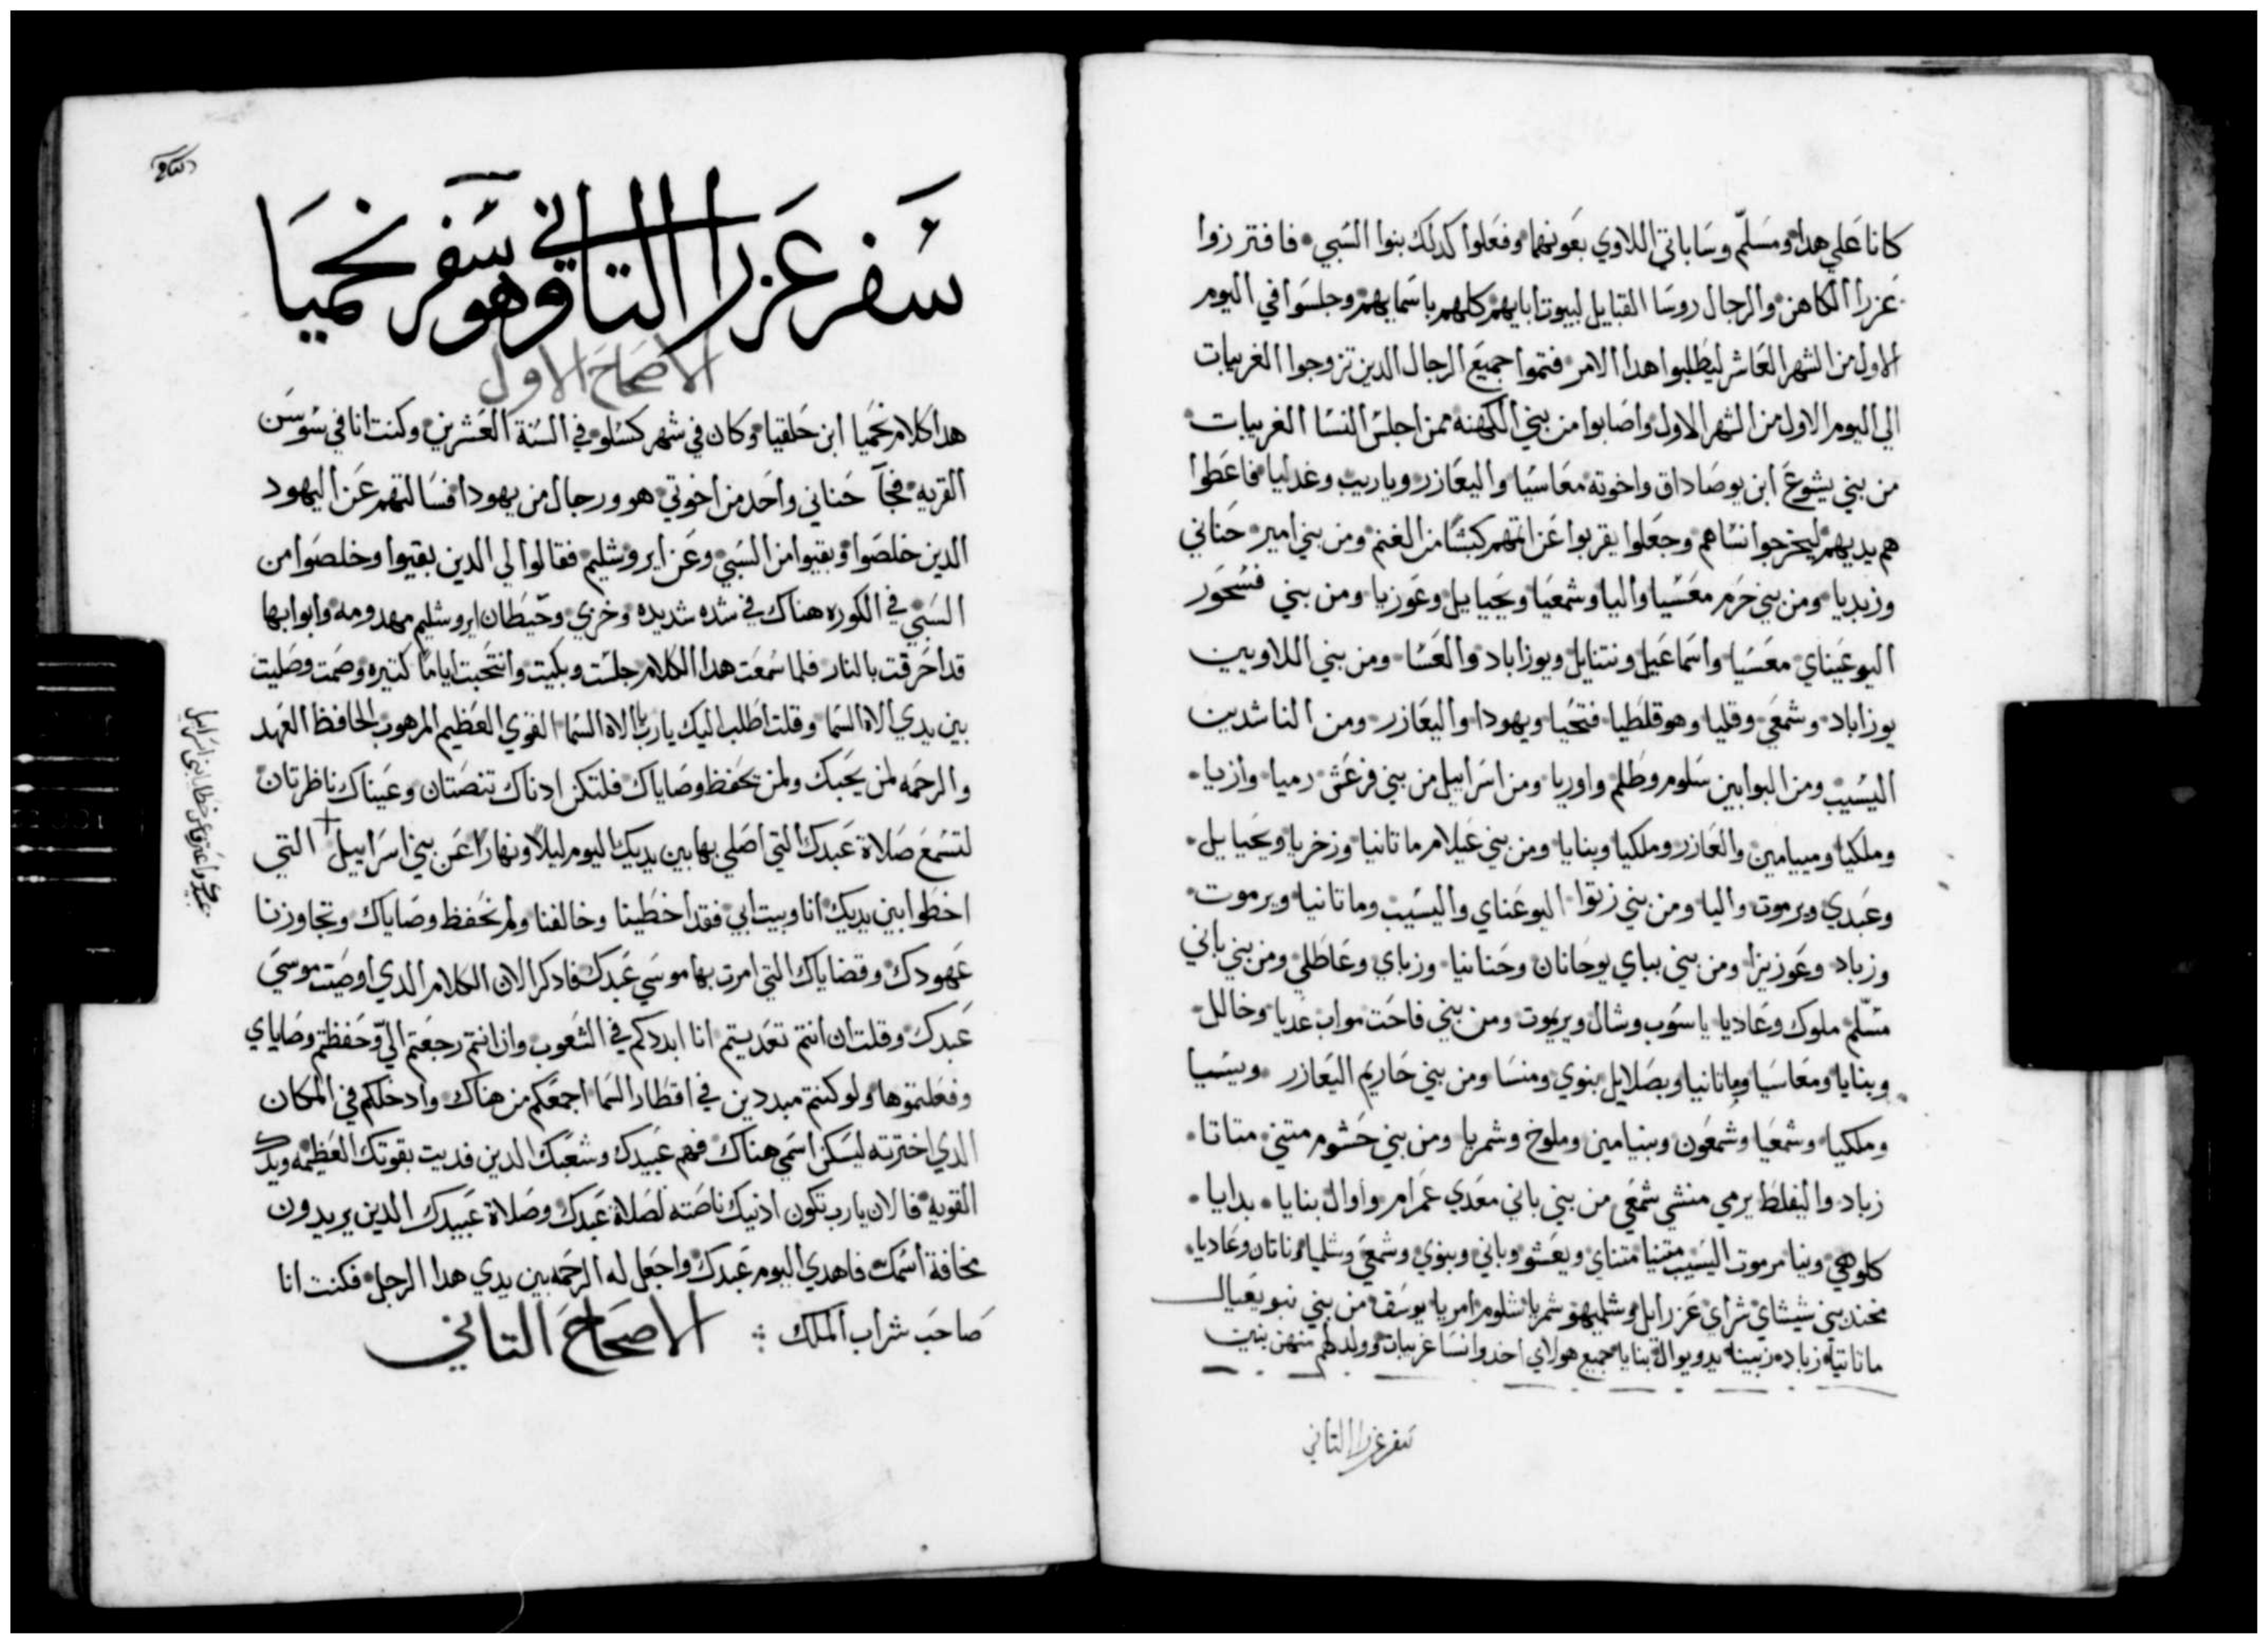 كانا على هدا ومسلم وساباتي اللاوي بعونهما وفعلوا كدلك بنوا السبي فافترزوا
عزرا الكاهن والرجال روسا القبايل لبيوت ابايهم كلهم باسمايهم وجلسوا في اليوم
الاول من الشهر العاشر ليطلبوا هدا الامر فتموا جميع الرجال الدين تزوجوا الغريبات
الي اليوم الاول من الشهر الاول واصابوا من بني الكهنه ممن اجلس النسا الغريبات
من بني يشوع ابن يوصاداق واخوته معاسيا واليعازر وياريب وغدليا فاعطوا
هم يديهم ليخرجوا نساهم وجعلوا يقربوا عن اتمهم كبشا من الغنم ومن بني امير حناني
وزبديا ومن بني خرم معسيا واليا وشمعيا ويحياييل وعوزيا ومن بني فسحور
اليوعيناي معسيا واسماعيل ونتنايل ويوزاباد والعسا ومن بني اللاويين
يوزاباد وشمعي وقليا وهو قلطيا فتحيا ويهودا واليعازر ومن الناشدين
اليسيب ومن البوابين سلوم وطلم واوريا ومن اسراييل من بني فرعش رميا وازيا
وملكيا وميامين والعازر وملكيا وبنايا ومن بني عيلام ماتانيا وزخريا ويحياييل
وعبدي ويرموت واليا ومن بني زتوا اليوعناي واليسيب وماتانيا ويرموت
وزباد وعوزيزا ومن بني بباي يوحانان وحنانيا وزباي وعاطلي ومن بني باني
مسلم ملوك وعاديا ياسوب وشال ويريموت ومن بني فاحت مواب عديا وخالل
وبنايا ومعاسيا وماتانيا وبصلاييل بنوي ومنسا ومن بني حاريم اليعازر ويسيا
وملكيا وشمعيا وشمعون وبنيامين وملوخ وشمريا ومن بني حشوم متني متاتا
زباد واليفلط يرمي منشي شمعي من بني باني معدي عمرام واوال بنايا بدايا
كلوهي وبنيا مرموت اليسيب متنيا متناي ويعشو وباني وبنوي وشمعي وشلميا وناتان وعاديا
مخند بني شيشاي شراي عزرايل وشلميهو شمريا شلوم امريا يوسف من بني نبو يعيال
ماتاتيا زباد زبينا يدو يوال بنايا جميع هولاي اخدوا نسا غريبات وولد لهم منهن بنين
سفر عزرا التاني
سفر عزرا التاني وهو سفر نحميا
الاصحاح الاول
هدا كلام نحميا ابن حلقيا وكان في شهر كسلو في السنة العشرين وكنت انا في سوسن
القريه فجآ حناني واحد من اخوتي هو ورجال من يهودا فسالتهم عن اليهود
الدين خلصوا وبقيوا من السبي وعن ايروشليم فقالوا لي الدين بقيوا وخلصوا من
السبي في الكوره هناك في شده شديده وخزي وحيطان ايروشليم مهدومه وابوابها
قد احرقت بالنار فلما سمعت هدا الكلام جلست وبكيت وانتحبت اياما كتيره وصمت وصليت
بين يدي الاه السما وقلت اطلب اليك يارب الاه السما القوي العظيم المرهوب الحافظ العهد
والرحمه لمن يحبك ولمن يحفظ وصاياك فلتكن ادناك تنصتان وعيناك ناظرتان
لتسمع صلاة عبدك التي اصلي بها بين يديك اليوم ليلا ونهارا عن بني اسراييل التي
اخطوا بين يديك انا وبيت ابي فقد اخطينا وخالفنا ولم نحفظ وصاياك وتجاوزنا
عهودك وقضاياك التي امرت بها موسي عبدك فادكر الان الكلام الدي اوصيت موسي
عبدك وقلت ان انتم تعديتم انا ابددكم في الشعوب وان انتم رجعتم الي وحفظتم وصاياي
وفعلتموها ولو كنتم مبددين في اقطار السما اجمعكم من هناك وادخلكم في المكان
الدي اخترته ليسكن اسمي هناك فهم عبيدك وشعبك الدين فديت بقوتك العظيمه ويدك
القويه فالان يارب تكون ادنيك ناصته لصلاة عبدك وصلاة عبيدك الدين يريدون
مخافة اسمك فاهدي اليوم عبدك واجعل له الرحمه بين يدي هدا الرجل فكنت انا
صاحب شراب الملك
الاصحاح التاني
عبيدك واعترف عن خطايا بني اسراييل